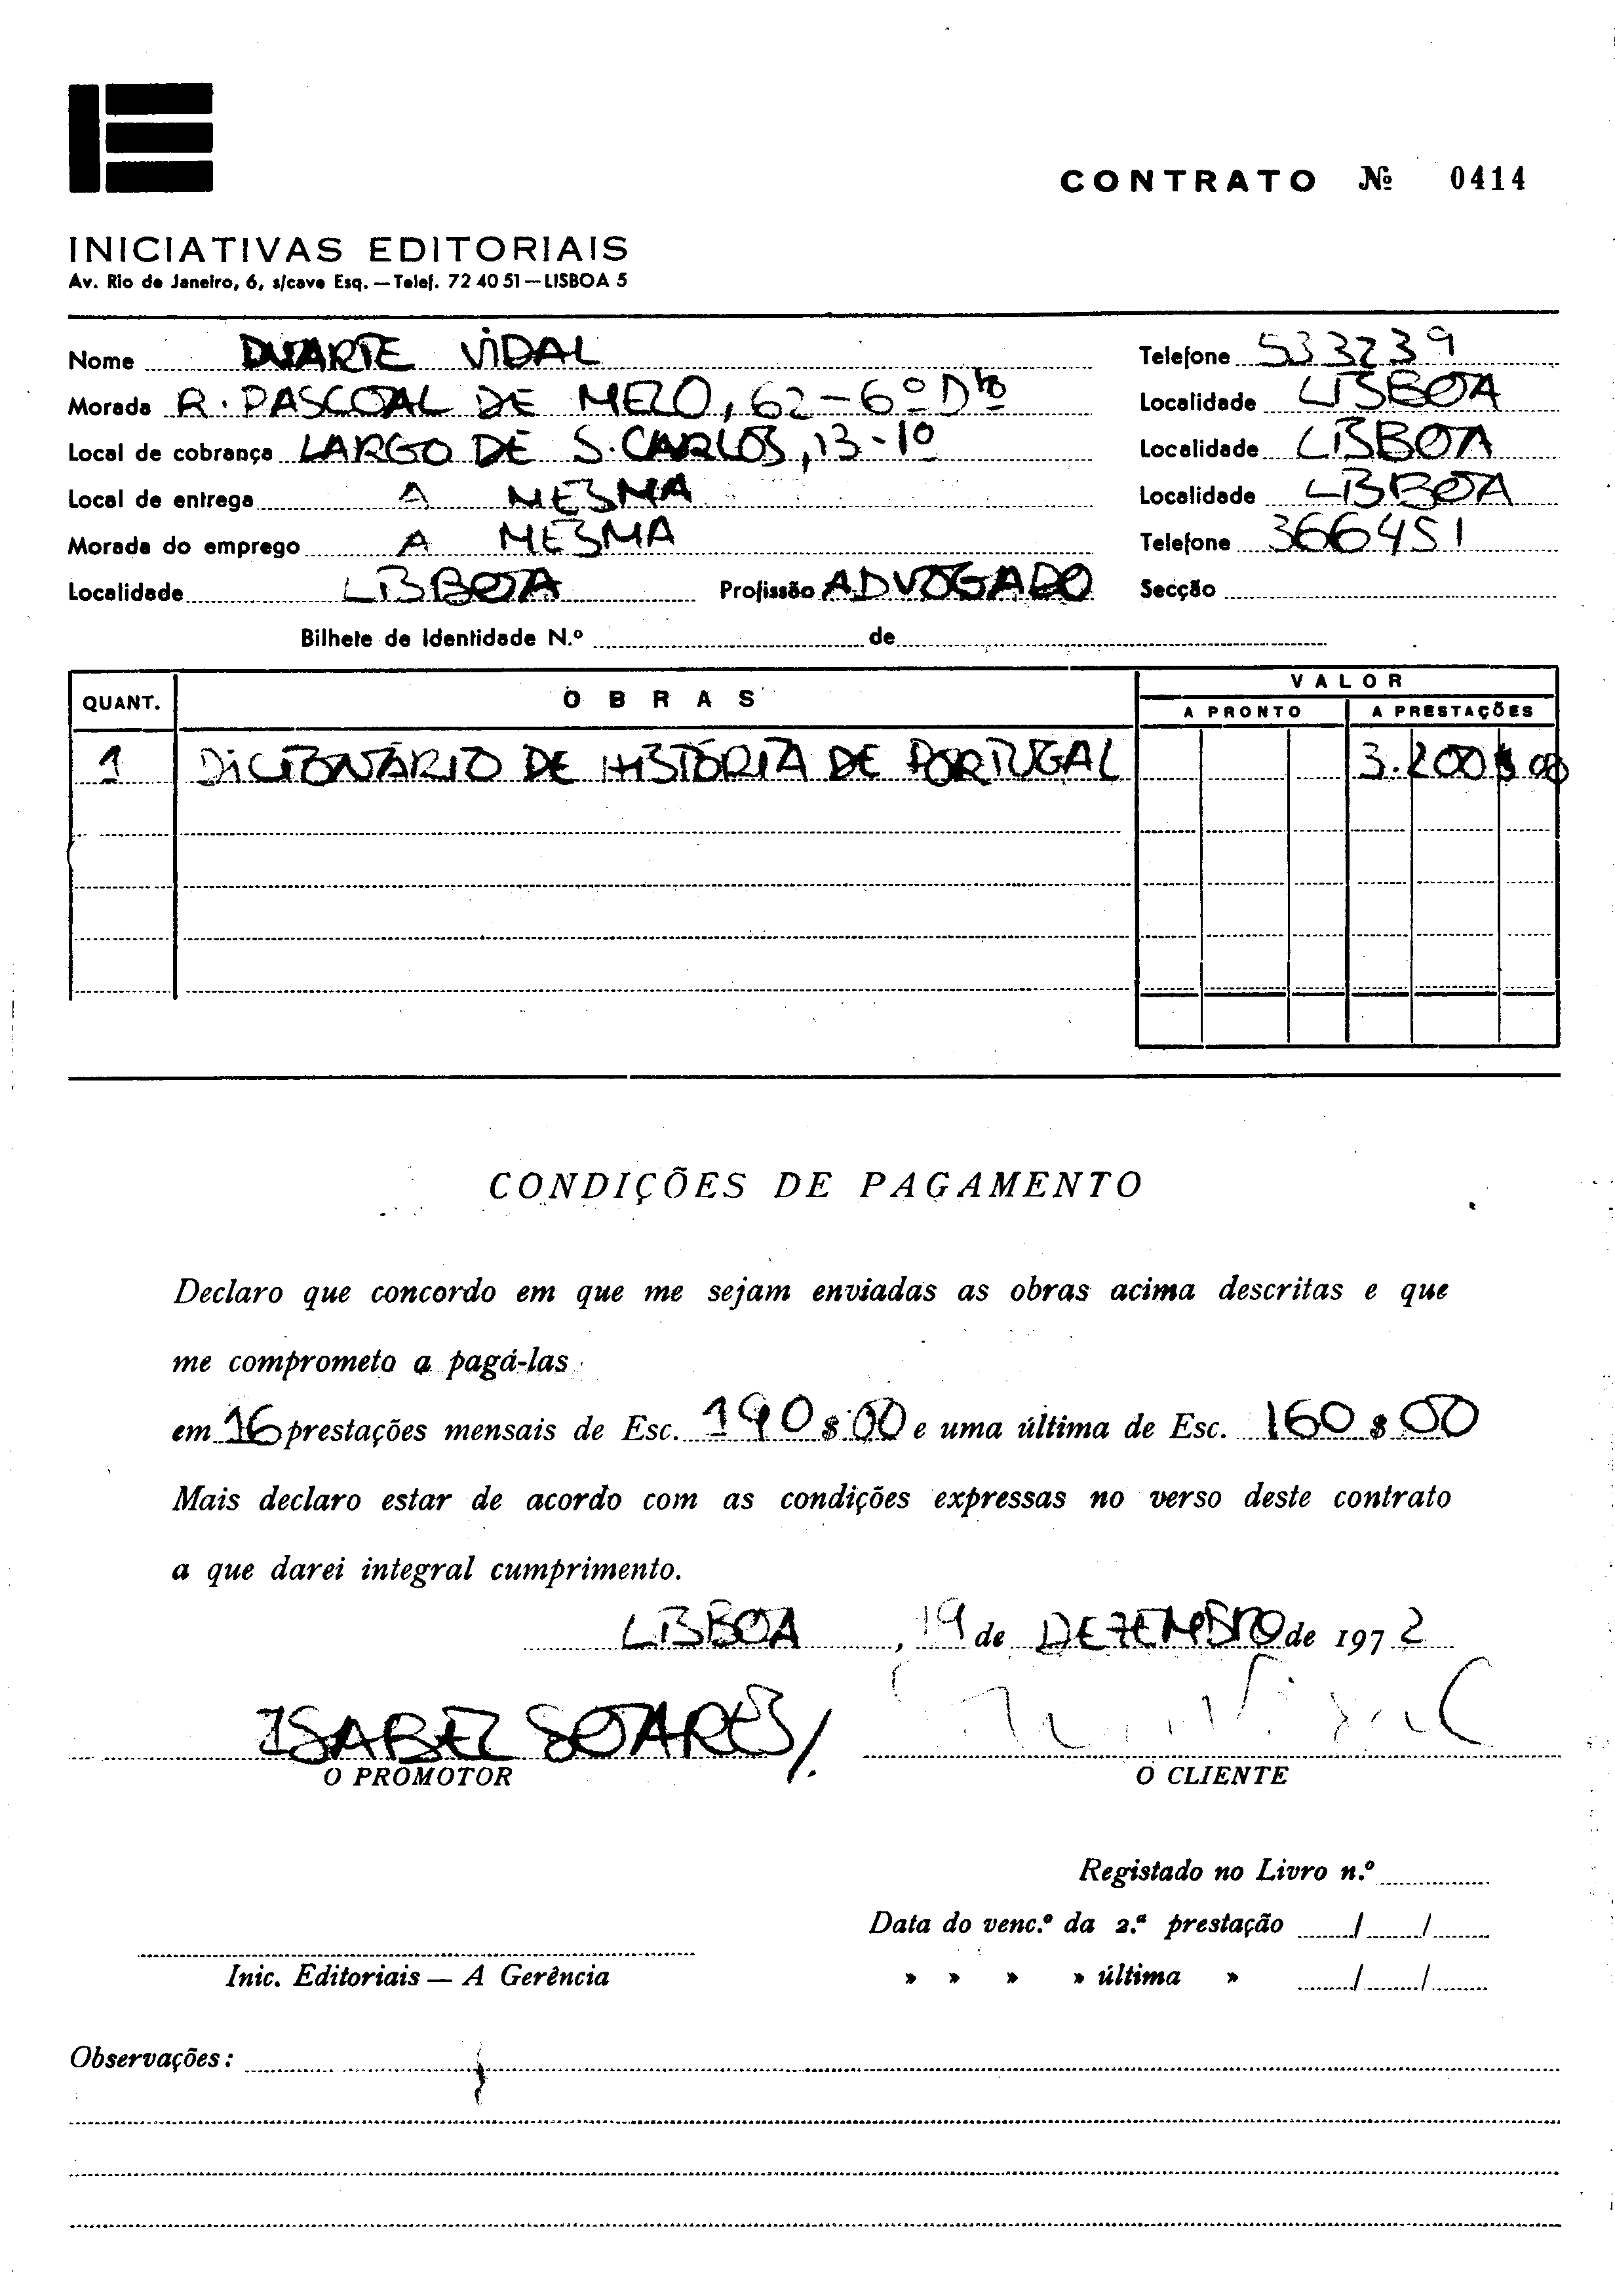 CONTRATO № 0414
INICIATIVAS EDITORIAIS
Av. Rio de Janeiro, 6, s/cave Esq. — Telef. 72 40 51 — LISBOA 5
Nome DUARTE VIDAL Telefone 533239
Morada R. PASCOAL DE MELO, 62-6º Dto Localidade LISBOA
Local de cobrança LARGO DE S. CARLOS, 13-1º Localidade LISBOA
Local de entrega A MESMA Localidade LISBOA
Morada do emprego A MESMA Telefone 366451
Localidade LISBOA Profissão ADVOGADO Secção
Bilhete de Identidade N.º de
QUANT. OBRAS VALOR
A PRONTO A PRESTAÇÕES
1 DICIONÁRIO DE HISTÓRIA DE PORTUGAL 3.200$00
CONDIÇÕES DE PAGAMENTO
Declaro que concordo em que me sejam enviadas as obras acima descritas e que
me comprometo a pagá-las
em 16 prestações mensais de Esc. 190$00 e uma última de Esc. 160$00
Mais declaro estar de acordo com as condições expressas no verso deste contrato
a que darei integral cumprimento.
LISBOA, 19 de DEZEMBRO de 1972
ISABEL SOARES/. Vidal
O PROMOTOR O CLIENTE
Registado no Livro n.º
Data do venc.º da 2.ª prestação / /
Inic. Editoriais — A Gerência » » » » última » / /
Observações: